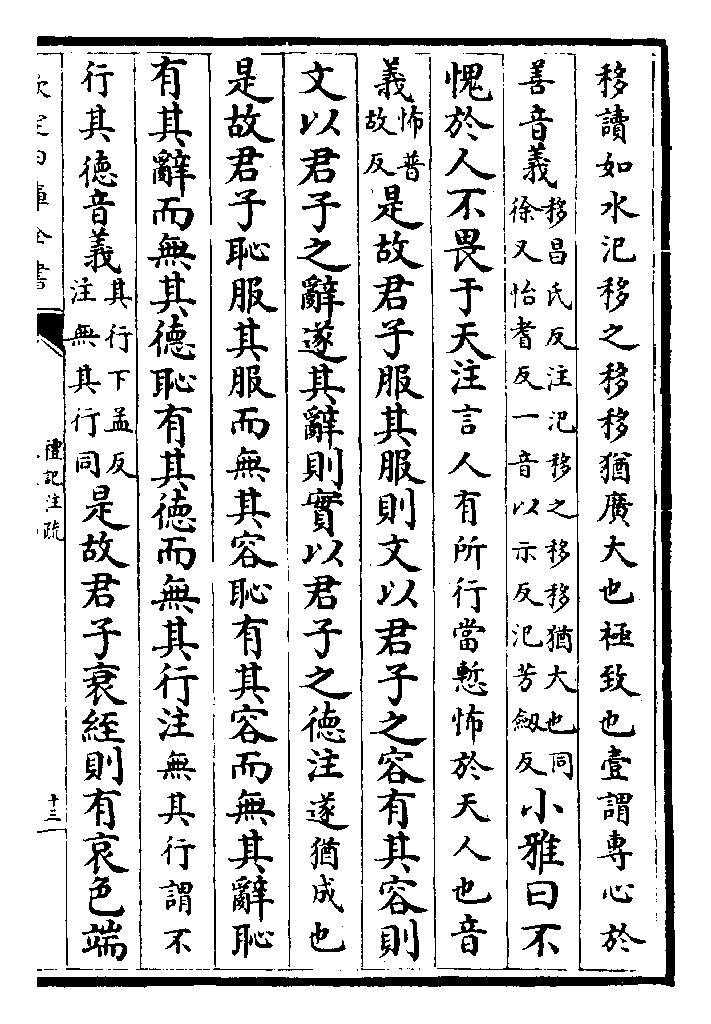 移讀如水汜移之移移猶廣大也極致也壹謂專心於
善音義移昌氏反注汜移之移移猶大也同徐又怡耆反一音以示反汜芳劔反小雅曰不
愧於人不畏于天注言人有所行當慙怖於天人也音
義怖普故反是故君子服其服則文以君子之容有其容則
文以君子之辭遂其辭則實以君子之德注遂猶成也
是故君子恥服其服而無其容恥有其容而無其辭恥
有其辭而無其德恥有其德而無其行注無其行謂不
行其德音義其行下孟反注無其行同是故君子衰絰則有哀色端
欽定四庫全書
禮記注疏
十三